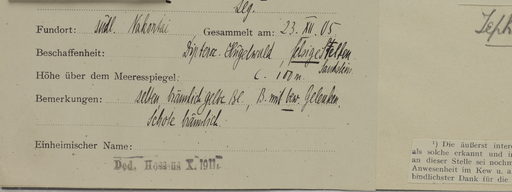 Leg.
Fundort: südl. Nakorntai Gesammelt am: 23. XII. 05
Beschaffenheit: Dipteroc. Hügelwald, felsige Stellen
Sandstein
Höhe über dem Meeresspiegel: c. 100 m
Bemerkungen: selten, bräunlich gelbe Bl., B. mit Gelenken.
Schote bräunlich.
Einheimischer Name:
Ded. Hosseus X. 1911
Jeph
¹) Die äußerst intere
als solche erkannt und i
an dieser Stelle sei nochm
Anwesenheit im Kew u. a
bindlichster Dank für die